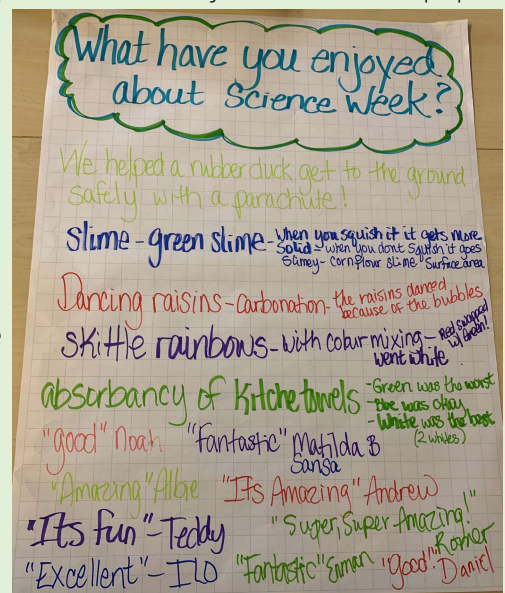 What have you enjoyed
about Science Week?
We helped a rubber duck get to the ground
safely with a parachute!
Slime - green slime - When you squish it it gets more
Solid - when you dont squish it goes
Slimey - cornflour slime Surface area
Dancing raisins - Carbonation - the raisins danced
because of the bubbles
Skittle rainbows - with colour mixing - Red swapped
w/ Green!
went white
absorbancy of Kitche towels - Green was the worst
- Blue was okay
- White was the best
(2 whites)
"good" Noah "Fantastic" Matilda B
Sansa
"Amazing" Albie "Its Amazing" Andrew
"Its fun" - Teddy "Super, Super Amazing!"
"Excellent" - ILO "Fantastic" "good"
Daniel